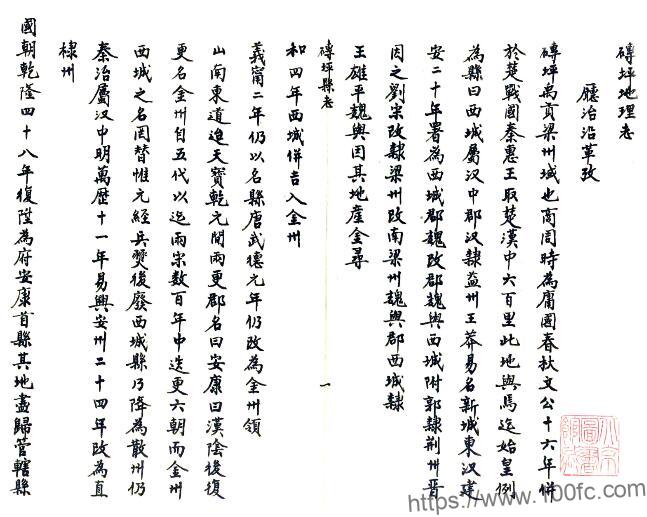 磚坪地理志
廳治沿革攷
磚坪禹貢梁州域也商周時為庸國春秋文公十六年併
於楚戰國秦惠王取楚漢中六百里此地與馬迄始皇例
為縣曰西城屬汉中郡汉隸益州王莽易名新城東汉建
安二十年署為西城郡魏改郡魏興西城附郭隸荆州晋
因之劉宋改隸梁州改南梁州魏興郡西城隸
王雄平魏興因其地產金尋
磚坪縣志
一
和四年西城併吉入金州
義甯二年仍以名縣唐武德元年仍改為金州領
山南東道進天寶乾元間兩更郡名曰安康曰漢陰後復
更名金州自五代以迄兩宋數百年中迭更六朝而金州
西城之名罔替惟元經兵燹後廢西城縣乃降為散州仍
秦治屬汉中明萬歷十一年易興安州二十四年改為直
棣州
國朝乾隆四十八年復陞為府安康首縣其地盡歸管轄縣
https://www.100fc.com